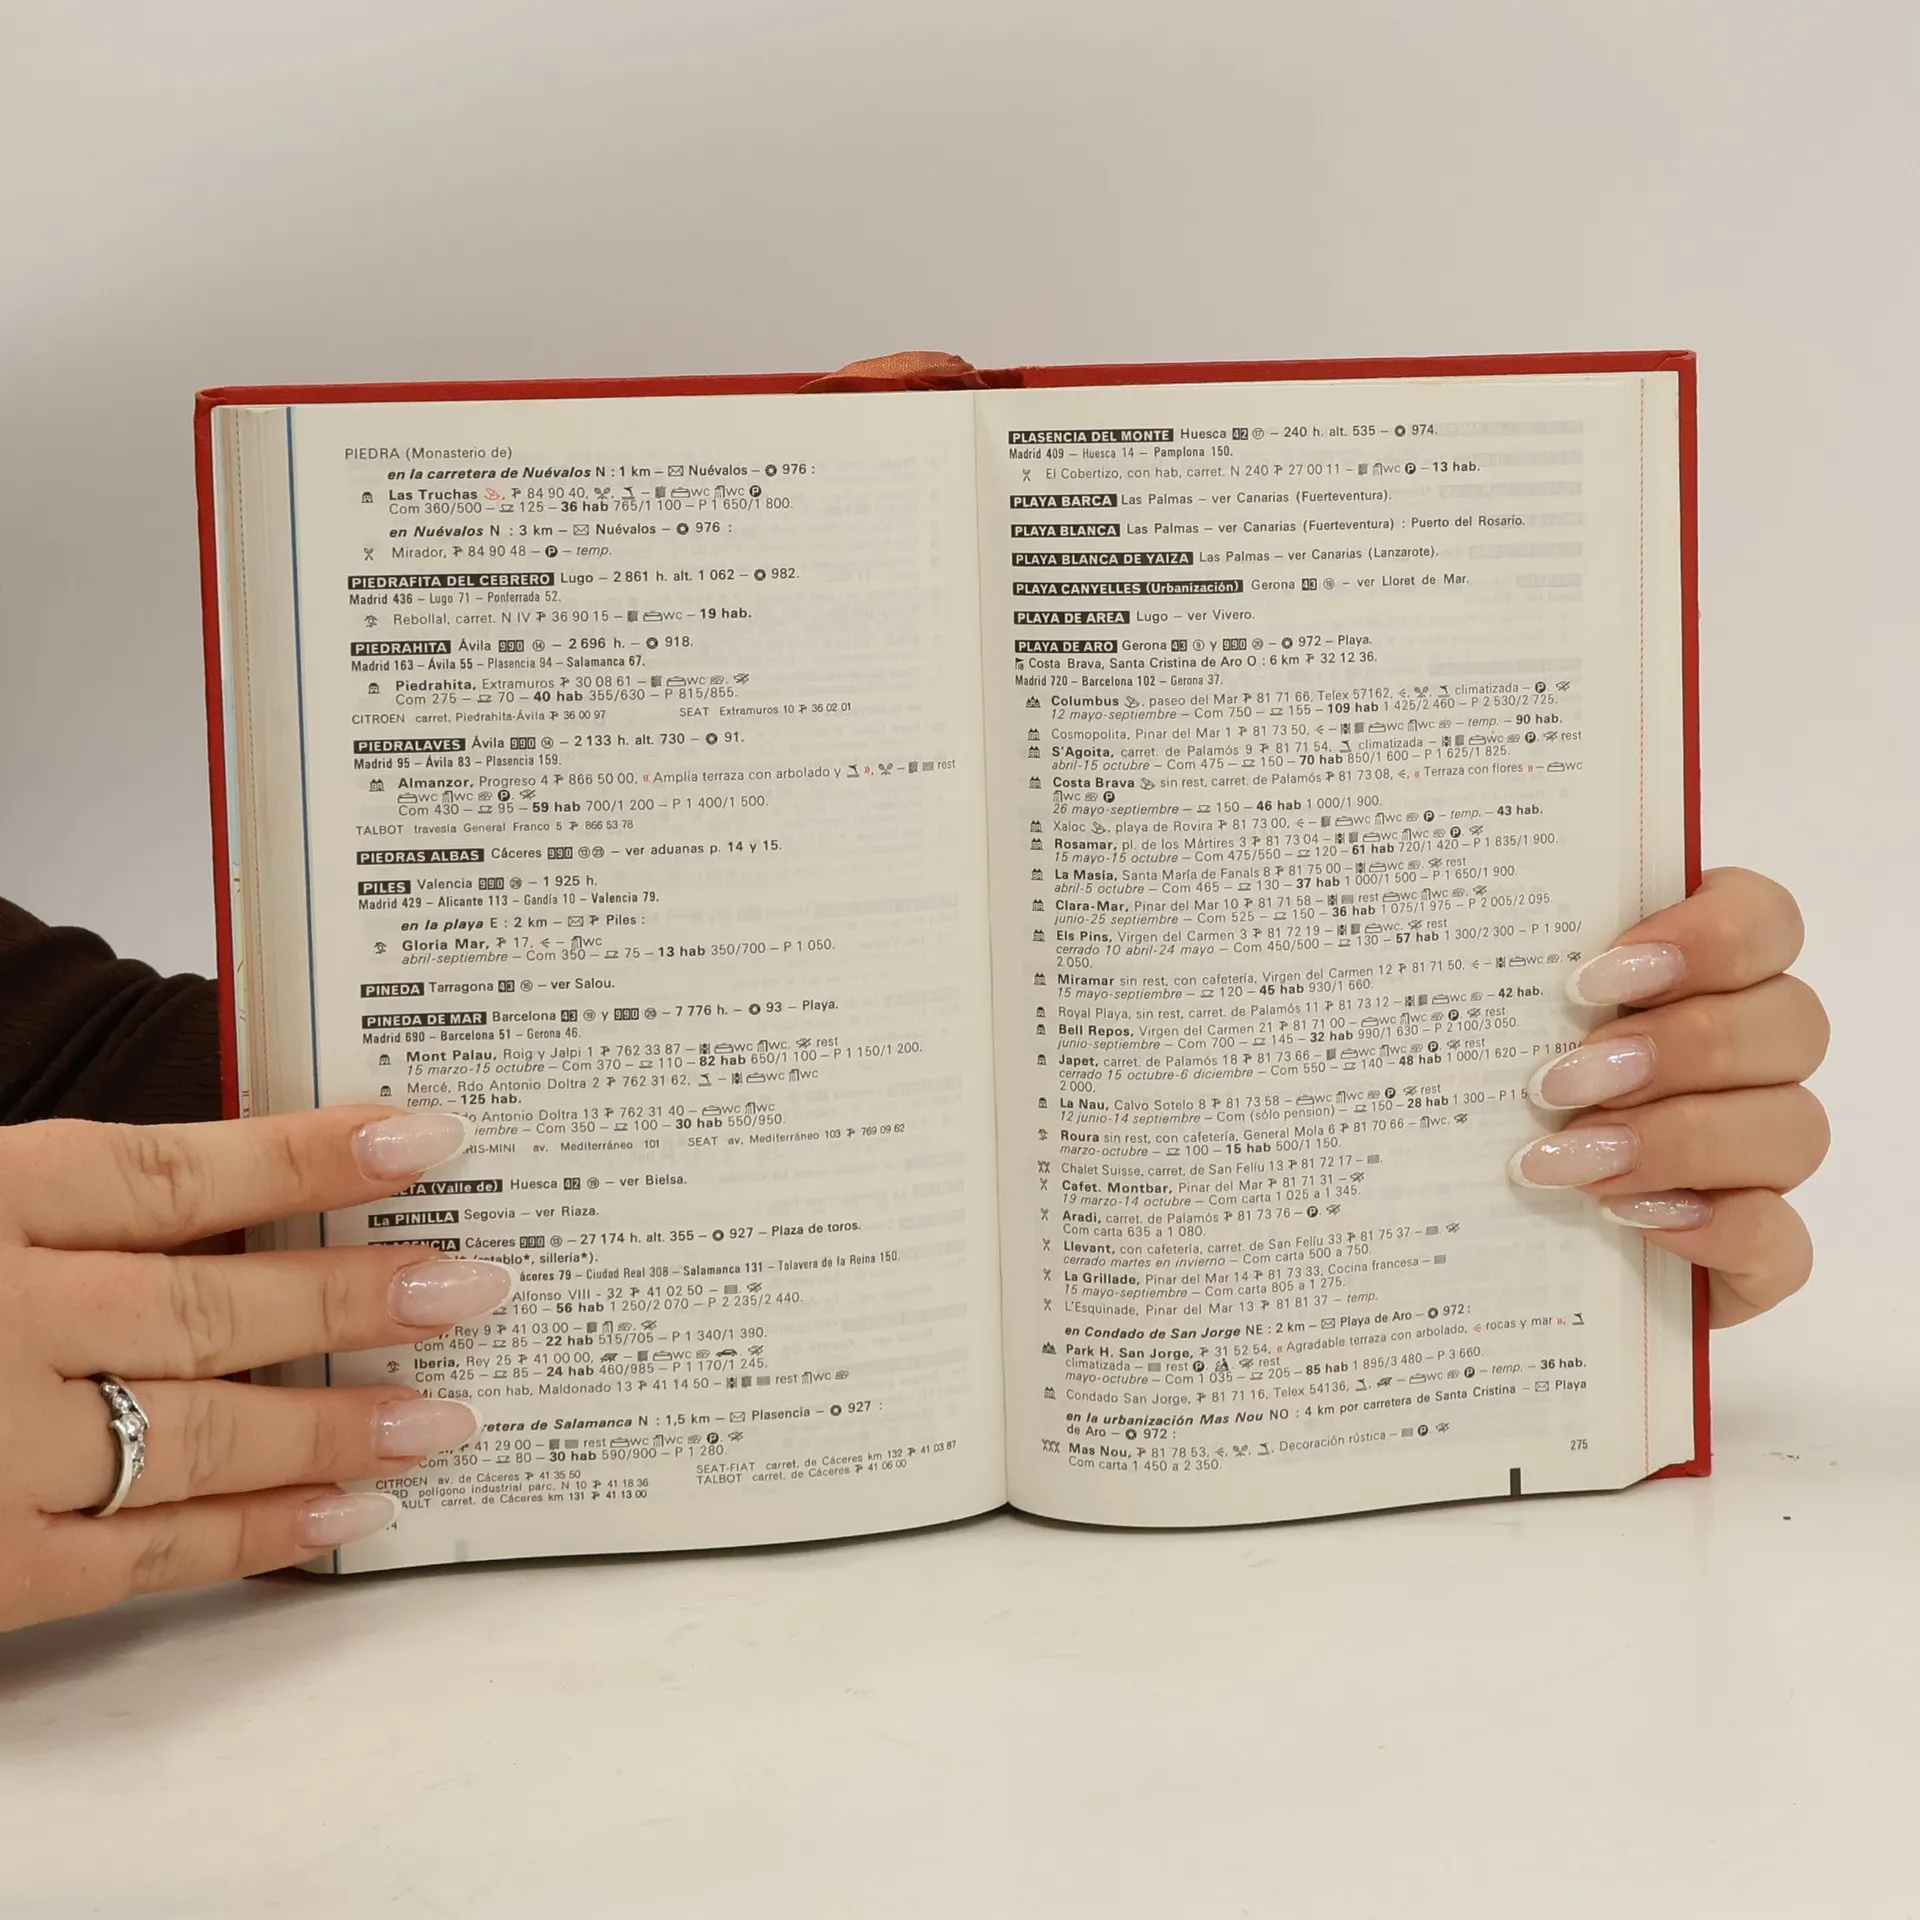 PIEDRA (Monasterio de)
en la carretera de Nuévalos N : 1 km – Nuévalos – 976 :
Las Truchas, 84 90 40, – wc wc P
Com 360/500 – 125 – 36 hab 765/1 100 – P 1 650/1 800.
en Nuévalos N : 3 km – Nuévalos – 976 :
Mirador, 84 90 48 – P – temp.
PIEDRAFITA DEL CEBRERO Lugo – 2 861 h. alt. 1 062 – 982.
Madrid 436 – Lugo 71 – Ponferrada 52.
Rebollal, carret. N IV 36 90 15 – wc – 19 hab.
PIEDRAHITA Ávila 990 ⑭ – 2 696 h. – 918.
Madrid 163 – Ávila 55 – Plasencia 94 – Salamanca 67.
Piedrahita, Extramuros 30 08 61 – wc
Com 275 – 70 – 40 hab 355/630 – P 815/855.
CITROEN carret. Piedrahita-Ávila 36 00 97 SEAT Extramuros 10 36 02 01
PIEDRALAVES Ávila 990 ⑭ – 2 133 h. alt. 730 – 91.
Madrid 95 – Ávila 83 – Plasencia 159.
Almanzor, Progreso 4 866 50 00, « Amplia terraza con arbolado y », – rest
wc wc P.
Com 430 – 95 – 59 hab 700/1 200 – P 1 400/1 500.
TALBOT travesia General Franco 5 866 53 78
PIEDRAS ALBAS Cáceres 990 – ver aduanas p. 14 y 15.
PILES Valencia 990 – 1 925 h.
Madrid 429 – Alicante 113 – Gandía 10 – Valencia 79.
en la playa E : 2 km – Piles :
Gloria Mar, 17, – wc
abril-septiembre – Com 350 – 75 – 13 hab 350/700 – P 1 050.
PINEDA Tarragona 43 – ver Salou.
PINEDA DE MAR Barcelona 43 y 990 – 7 776 h. – 93 – Playa.
Madrid 690 – Barcelona 51 – Gerona 46.
Mont Palau, Roig y Jalpi 1 762 33 87 – wc wc. rest
15 marzo-15 octubre – Com 370 – 110 – 82 hab 650/1 100 – P 1 150/1 200.
Mercé, Rdo Antonio Doltra 2 762 31 62, – wc wc
temp. – 125 hab.
do Antonio Doltra 13 762 31 40 – wc wc
iembre – Com 350 – 100 – 30 hab 550/950.
RIS-MINI av. Mediterráneo 101 SEAT av. Mediterráneo 103 769 09 62
TA (Valle de) Huesca 42 – ver Bielsa.
La PINILLA Segovia – ver Riaza.
Cáceres 990 – 27 174 h. alt. 355 – 927 – Plaza de toros.
sillería*).
áceres 79 – Ciudad Real 308 – Salamanca 131 – Talavera de la Reina 150.
Alfonso VIII - 32 41 02 50 –
160 – 56 hab 1 250/2 070 – P 2 235/2 440.
Rey 9 41 03 00 –
Com 450 – 85 – 22 hab 515/705 – P 1 340/1 390.
Iberia, Rey 25 41 00 00, – wc
Com 425 – 85 – 24 hab 460/985 – P 1 170/1 245.
Mi Casa, con hab, Maldonado 13 41 14 50 – rest wc
retera de Salamanca N : 1,5 km – Plasencia – 927 :
41 29 00 – rest wc wc P.
Com 350 – 80 – 30 hab 590/900 – P 1 280.
CITROEN av. de Cáceres 41 35 50 SEAT-FIAT carret. de Cáceres km 132 41 03 87
RD polígono industrial parc. N 10 41 18 36 TALBOT carret. de Cáceres 41 06 00
AULT carret. de Cáceres km 131 41 13 00
4
PLASENCIA DEL MONTE Huesca 42 ⑰ – 240 h. alt. 535 – 974.
Madrid 409 – Huesca 14 – Pamplona 150.
El Cobertizo, con hab, carret. N 240 27 00 11 – wc P – 13 hab.
PLAYA BARCA Las Palmas – ver Canarias (Fuerteventura).
PLAYA BLANCA Las Palmas – ver Canarias (Fuerteventura) : Puerto del Rosario.
PLAYA BLANCA DE YAIZA Las Palmas – ver Canarias (Lanzarote).
PLAYA CANYELLES (Urbanización) Gerona 43 – ver Lloret de Mar.
PLAYA DE AREA Lugo – ver Vivero.
PLAYA DE ARO Gerona 43 ⑨ y 990 – 972 – Playa.
Costa Brava, Santa Cristina de Aro O : 6 km 32 12 36.
Madrid 720 – Barcelona 102 – Gerona 37.
Columbus, paseo del Mar 81 71 66, Telex 57162, climatizada – P.
12 mayo-septiembre – Com 750 – 155 – 109 hab 1 425/2 460 – P 2 530/2 725.
Cosmopolita, Pinar del Mar 1 81 73 50, – wc wc – temp. – 90 hab.
S'Agoita, carret. de Palamós 9 81 71 54, climatizada – wc P. rest
abril-15 octubre – Com 475 – 150 – 70 hab 850/1 600 – P 1 625/1 825.
Costa Brava sin rest, carret. de Palamós 81 73 08, « Terraza con flores » – wc
wc P
26 mayo-septiembre – 150 – 46 hab 1 000/1 900.
Xaloc, playa de Rovira 81 73 00, – wc wc P – temp. – 43 hab.
Rosamar, pl. de los Mártires 3 81 73 04 – wc wc P.
15 mayo-15 octubre – Com 475/550 – 120 – 61 hab 720/1 420 – P 1 835/1 900.
La Masía, Santa María de Fanals 8 81 75 00 – wc rest
abril-5 octubre – Com 465 – 130 – 37 hab 1 000/1 500 – P 1 650/1 900.
Clara-Mar, Pinar del Mar 10 81 71 58 – rest wc wc
junio-25 septiembre – Com 525 – 150 – 36 hab 1 075/1 975 – P 2 005/2 095.
Els Pins, Virgen del Carmen 3 81 72 19 – wc. rest
cerrado 10 abril-24 mayo – Com 450/500 – 130 – 57 hab 1 300/2 300 – P 1 900/
2 050.
Miramar sin rest, con cafetería, Virgen del Carmen 12 81 71 50, – wc
15 mayo-septiembre – 120 – 45 hab 930/1 660.
Royal Playa, sin rest, carret. de Palamós 11 81 73 12 – wc wc – 42 hab.
Bell Repos, Virgen del Carmen 21 81 71 00 – wc wc P. rest
junio-septiembre – Com 700 – 145 – 32 hab 990/1 630 – P 2 100/3 050.
Japet, carret. de Palamós 18 81 73 66 – wc wc P. rest
cerrado 15 octubre-6 diciembre – Com 550 – 140 – 48 hab 1 000/1 620 – P 1 810/
2 000.
La Nau, Calvo Sotelo 8 81 73 58 – wc wc P. rest
12 junio-14 septiembre – Com (sólo pension) – 150 – 28 hab 1 300 – P 1 5
Roura sin rest, con cafetería, General Mola 6 81 70 66 – wc.
marzo-octubre – 100 – 15 hab 500/1 150.
Chalet Suisse, carret. de San Felíu 13 81 72 17 –
Cafet. Montbar, Pinar del Mar 81 71 31 –
19 marzo-14 octubre – Com carta 1 025 a 1 345.
Aradi, carret. de Palamós 81 73 76 – P.
Com carta 635 a 1 080.
Llevant, con cafetería, carret. de San Felíu 33 81 75 37 –
cerrado martes en invierno – Com carta 500 a 750.
La Grillade, Pinar del Mar 14 81 73 33, Cocina francesa –
15 mayo-septiembre – Com carta 805 a 1 275.
L'Esquinade, Pinar del Mar 13 81 81 37 – temp.
en Condado de San Jorge NE : 2 km – Playa de Aro – 972 :
Park H. San Jorge, 31 52 54, « Agradable terraza con arbolado, rocas y mar »,
climatizada – rest P. rest
mayo-octubre – Com 1 035 – 205 – 85 hab 1 895/3 480 – P 3 660.
Condado San Jorge, 81 71 16, Telex 54136, – wc P – temp. – 36 hab.
en la urbanización Mas Nou NO : 4 km por carretera de Santa Cristina – Playa
de Aro – 972 :
Mas Nou, 81 78 53, Decoración rústica – P.
Com carta 1 450 a 2 350.
275